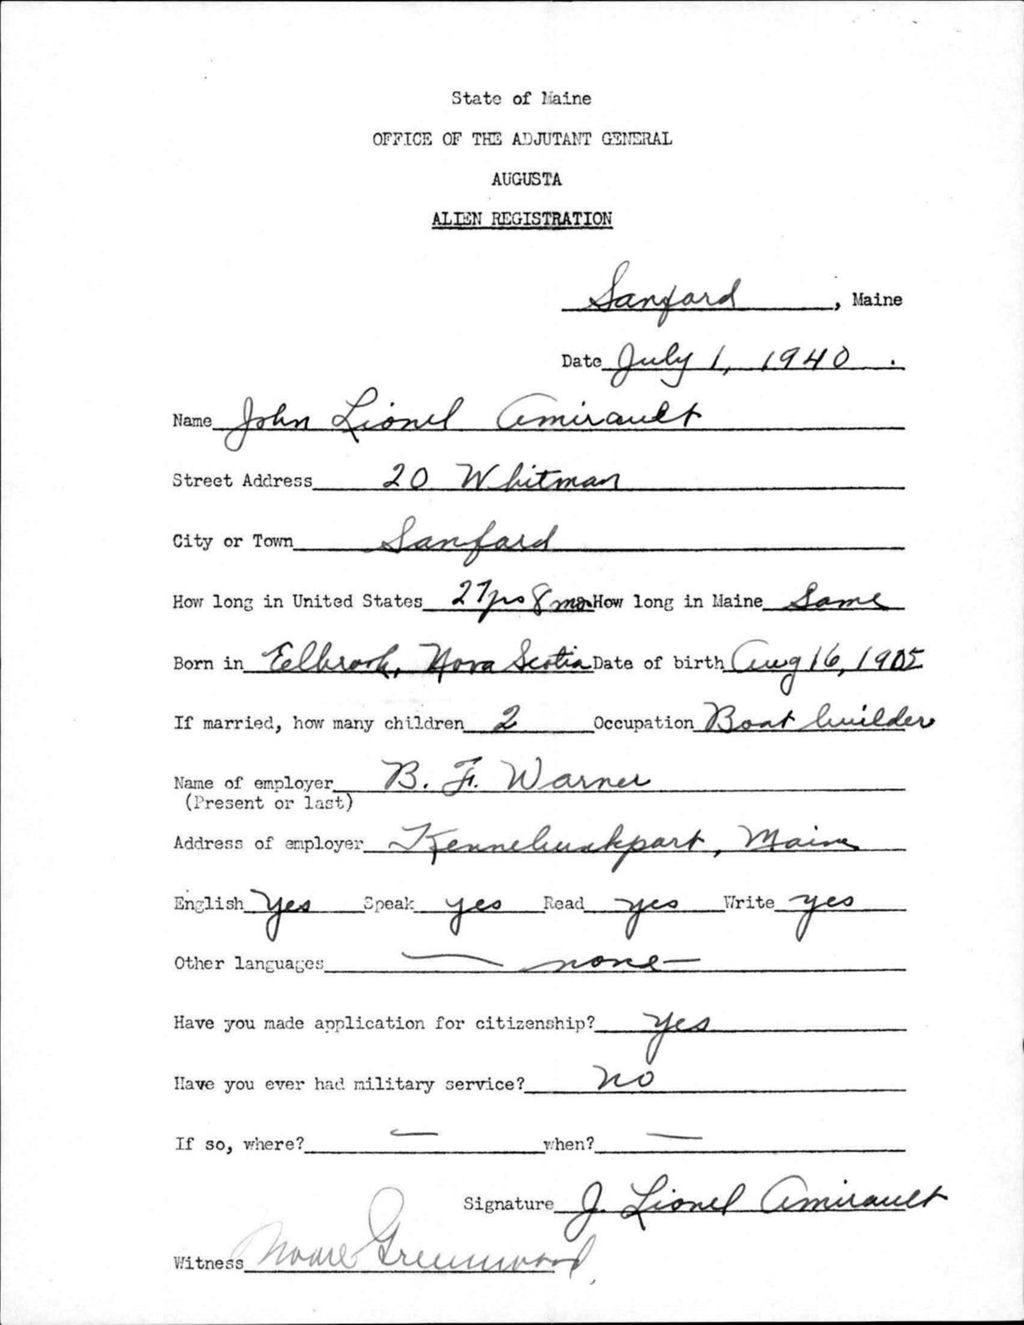 State of Maine
OFFICE OF THE ADJUTANT GENERAL
AUGUSTA
ALIEN REGISTRATION
Sanford, Maine
Date July 1, 1940.
Name John Lionel Amirault
Street Address 20 Whitman
City or Town Sanford
How long in United States 27 yrs 8 mos How long in Maine Same
Born in Eelbrook, Nova Scotia Date of birth Aug 16, 1905
If married, how many children 2 Occupation Boat builder
Name of employer B. F. Warner
(Present or last)
Address of employer Kennebunkport, Maine
English Yes Speak yes Read yes Write yes
Other languages — none —
Have you made application for citizenship? Yes
Have you ever had military service? No
If so, where? — when? —
Signature J. Lionel Amirault
Witness Greenwood